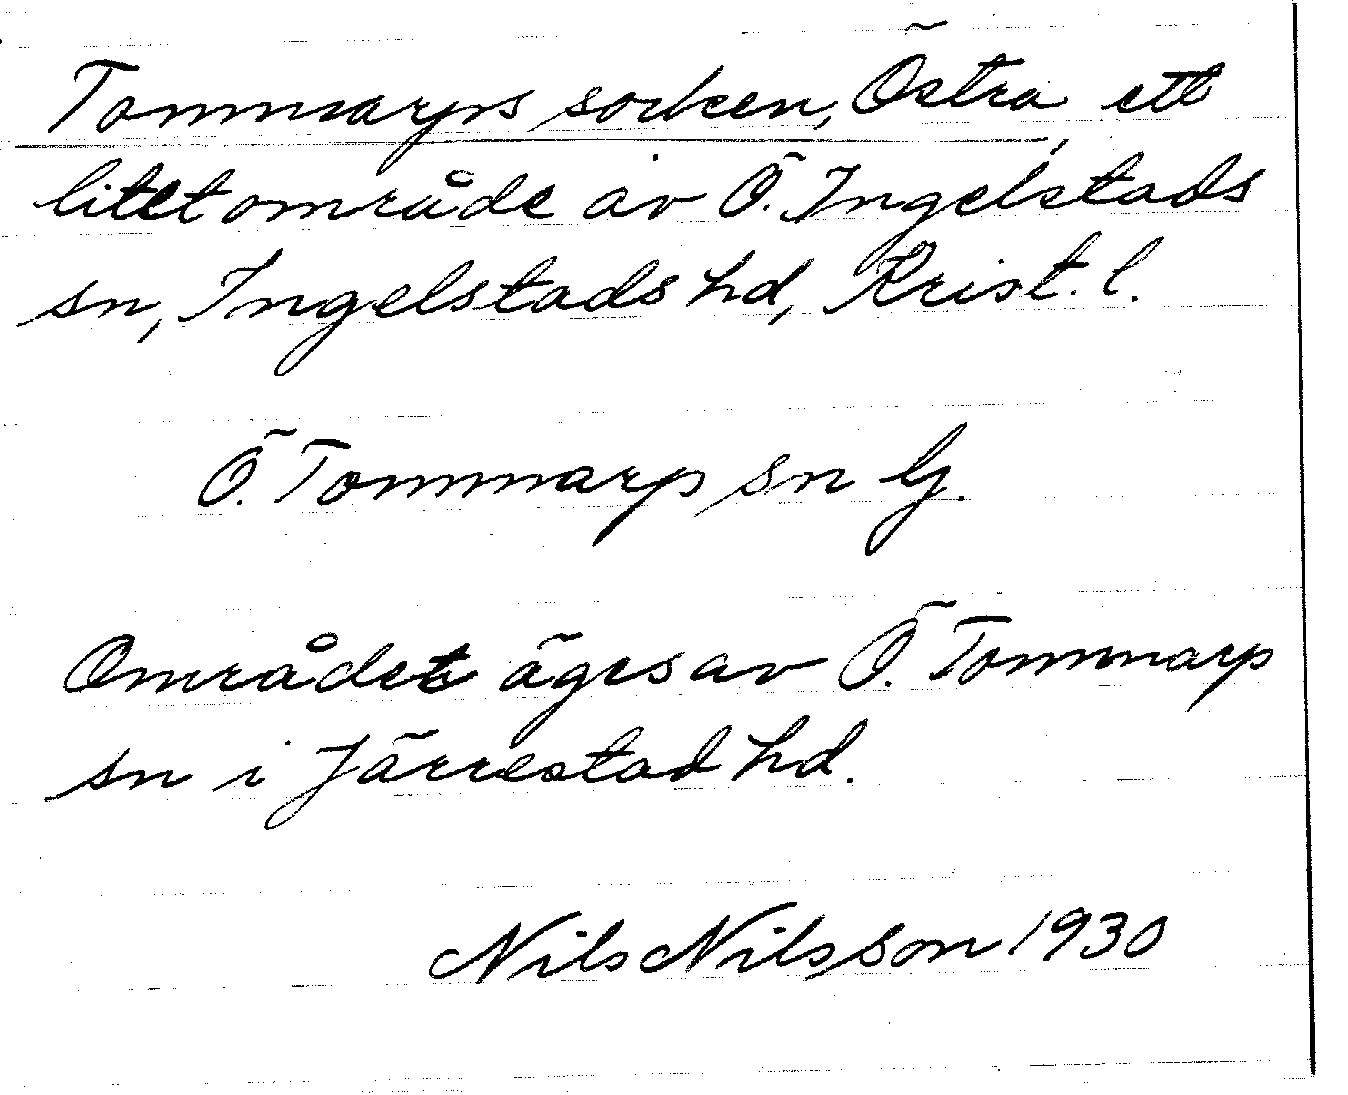 Tommarps socken, Östra, ett
litet område av Ö. Ingelstads
sn, Ingelstads hd, Krist. l.
Ö. Tommarp sn lj.
Området äges av Ö. Tommarp
sn i Järrestad hd.
Nils Nilsson 1930